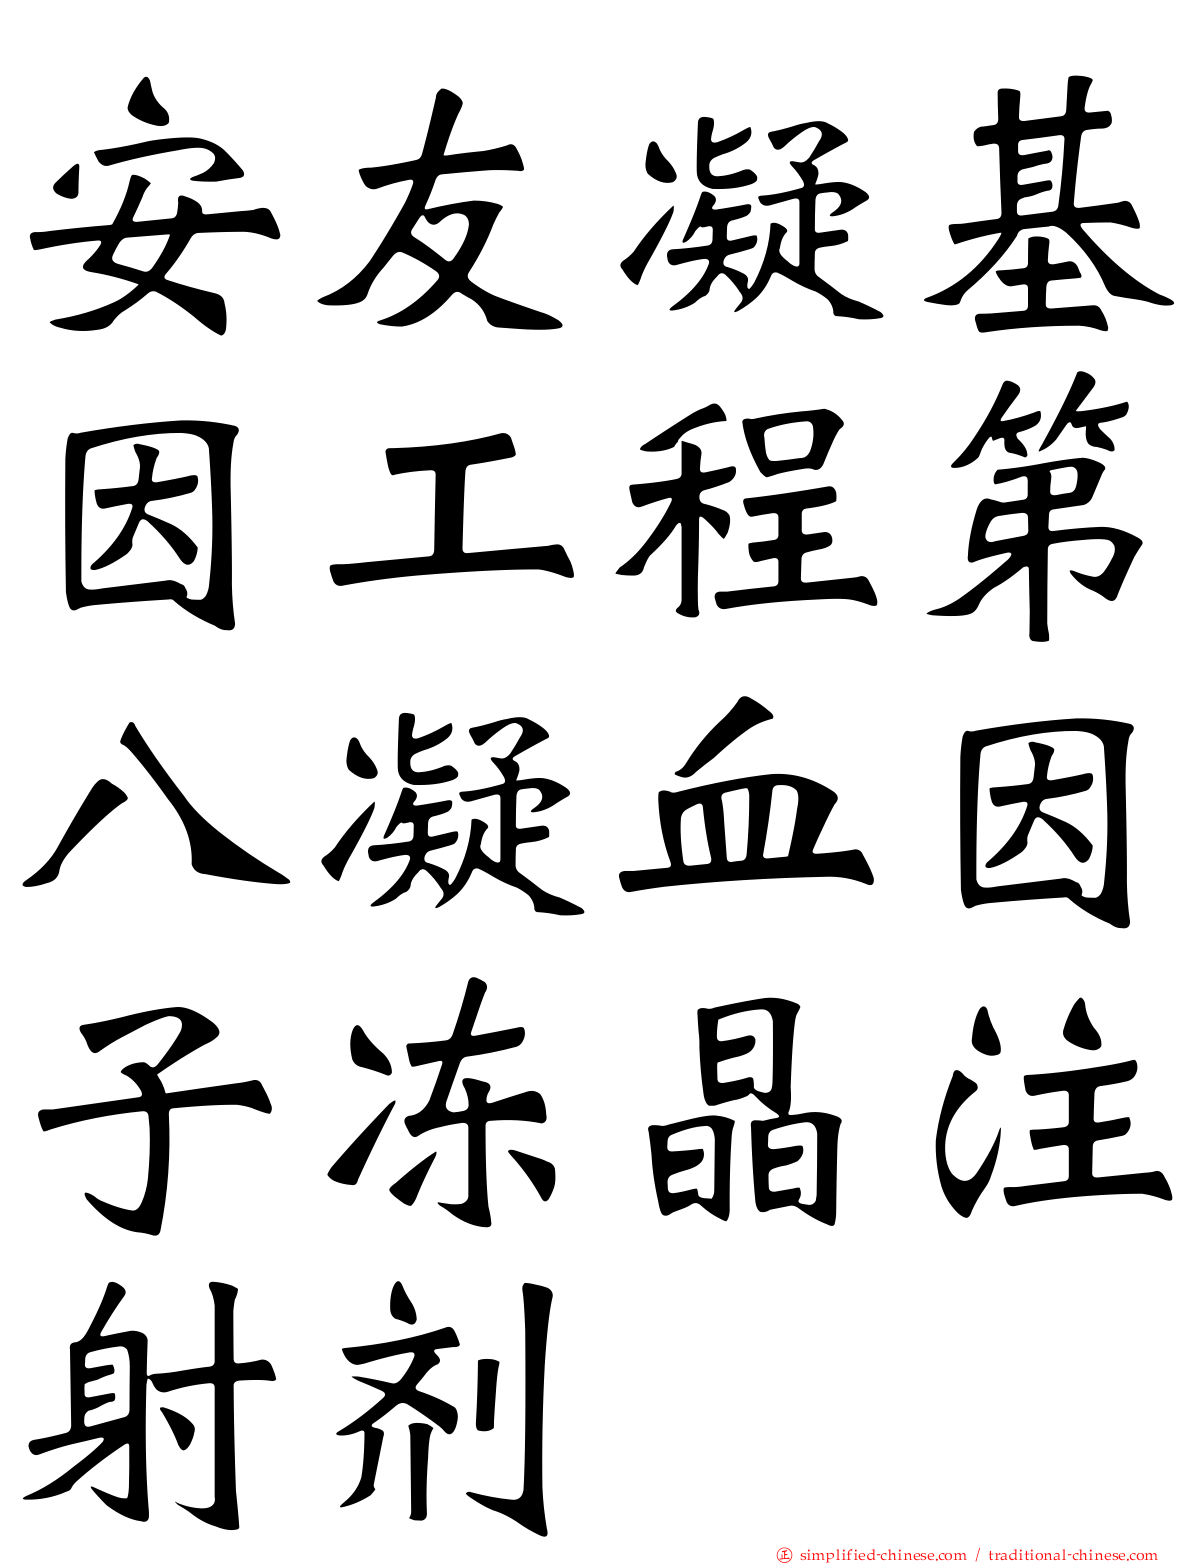 安友凝基
因工程第
八凝血因
子冻晶注
射剂
正 simplified-chinese.com / traditional-chinese.com